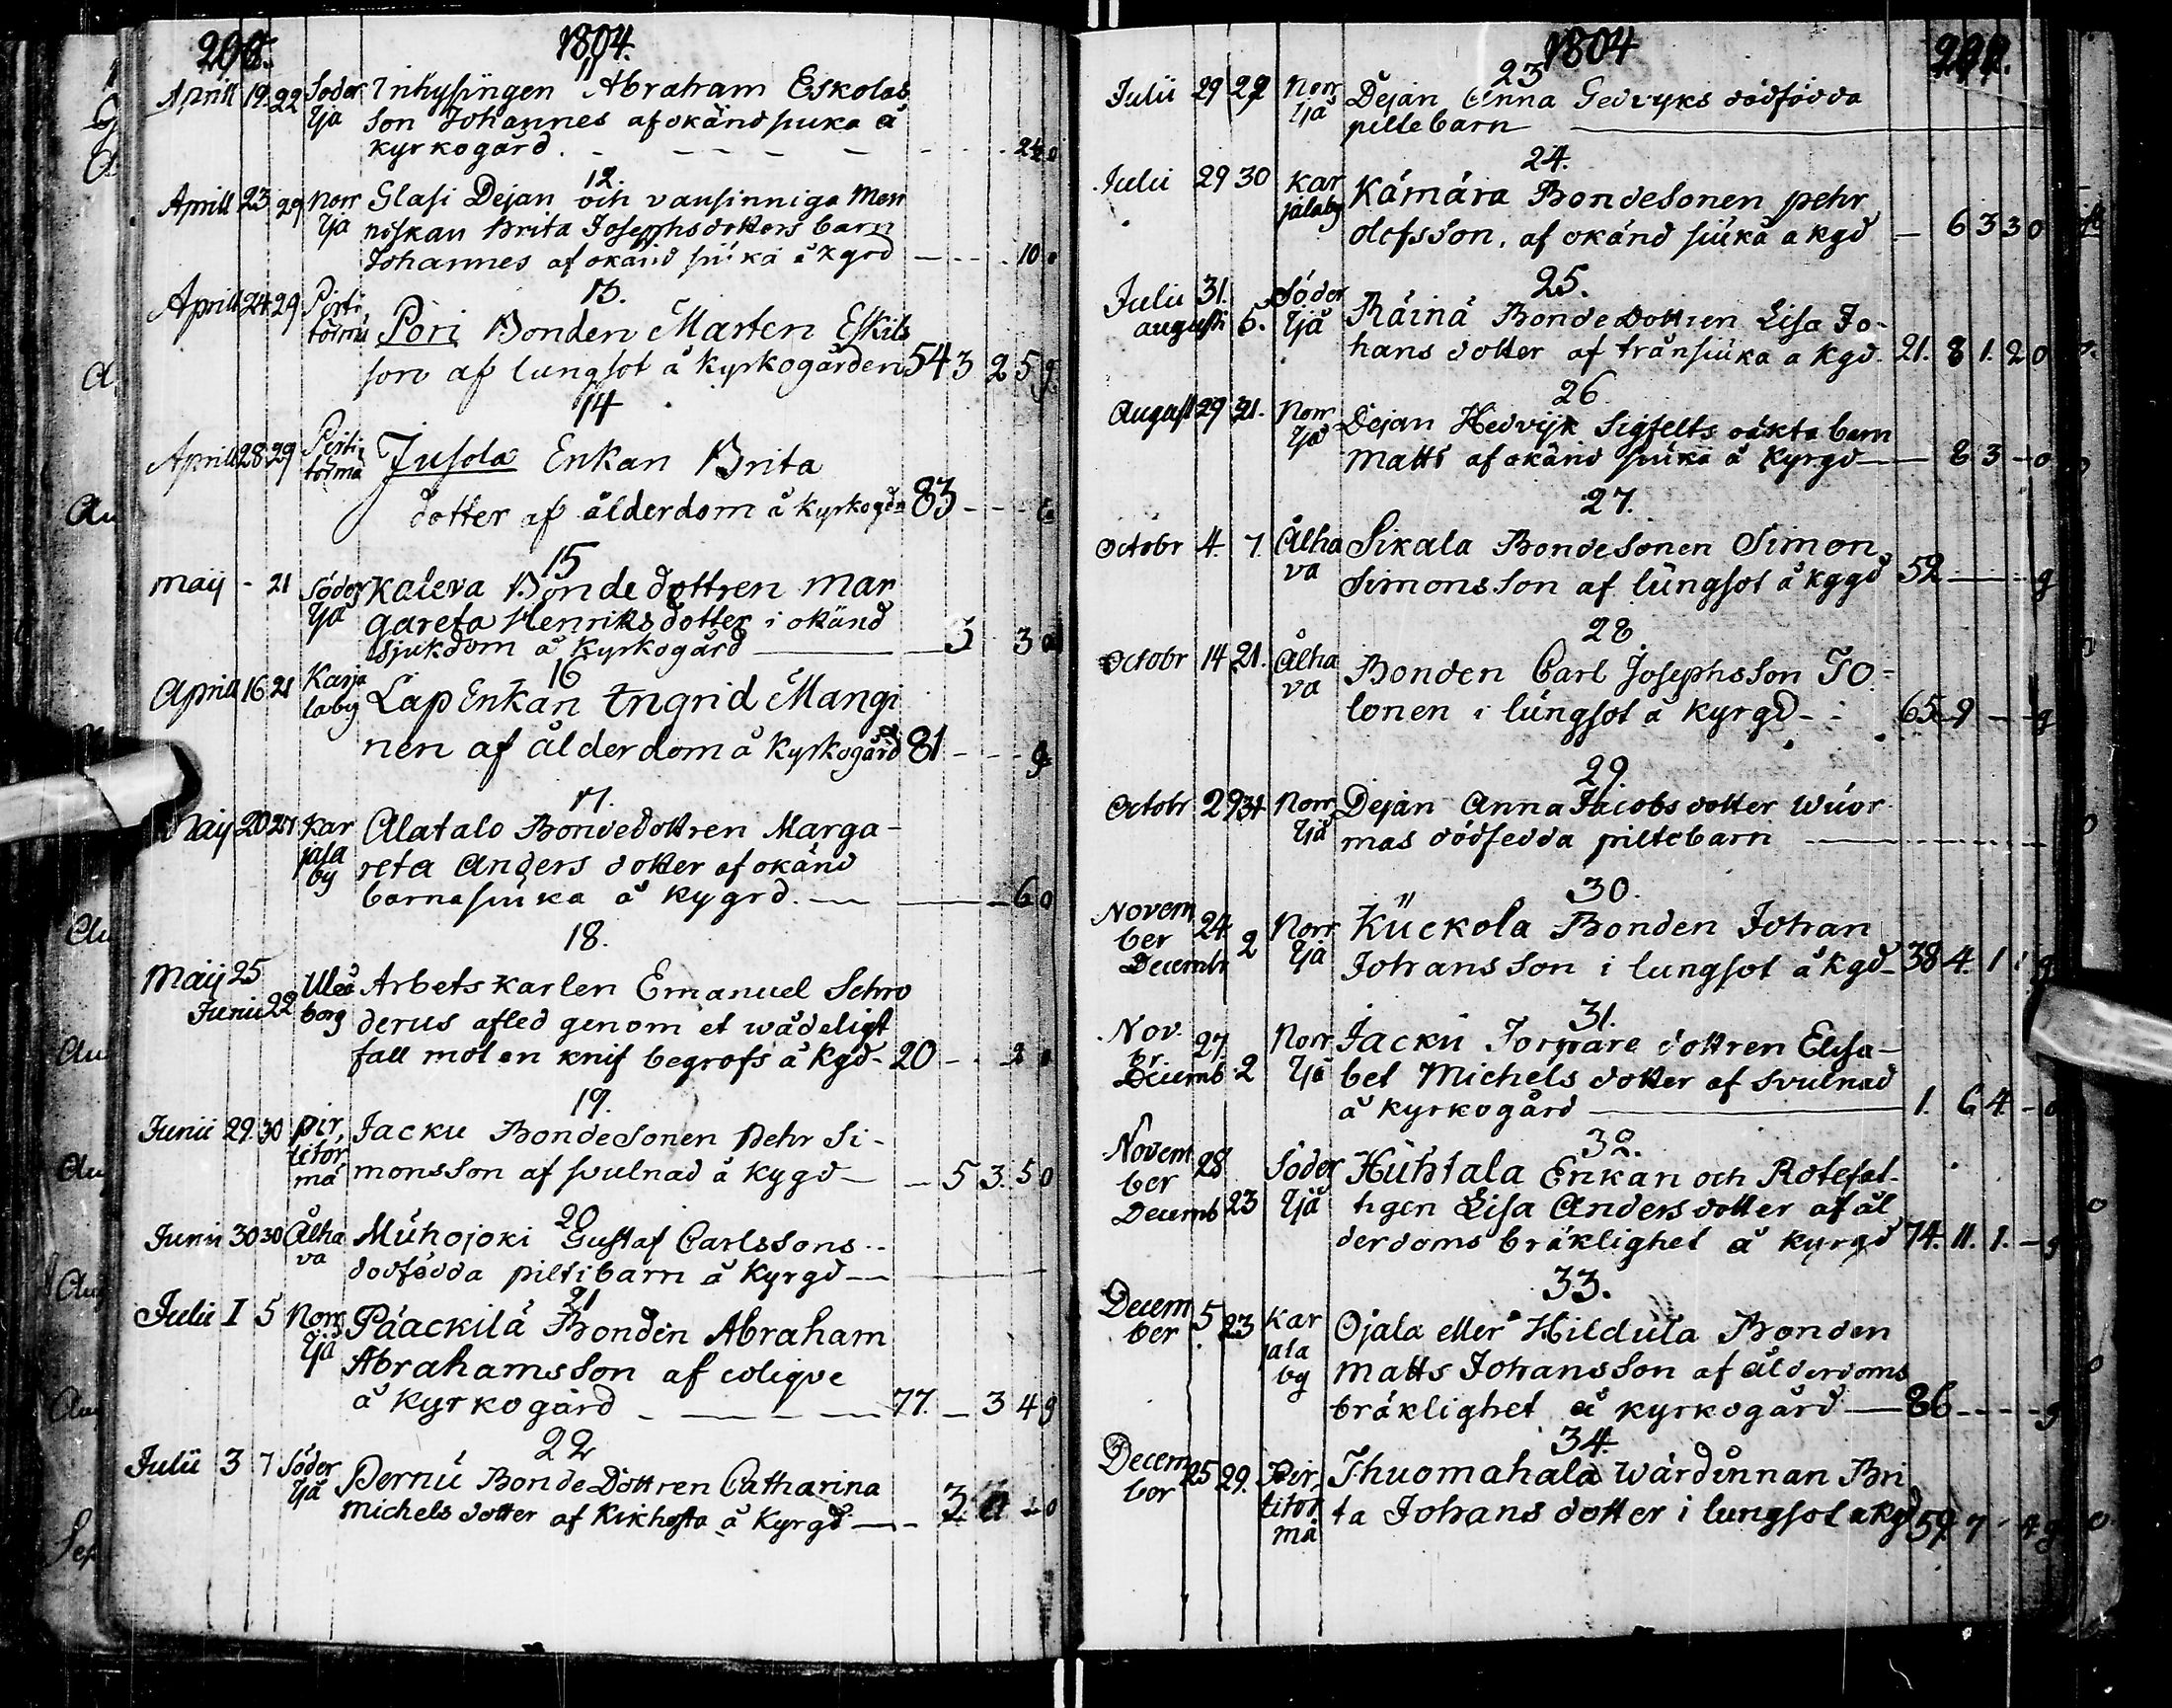 1804.
11
Aprill 19 22 Söder Inhysingen Abraham Eskolas
Ijå son Johannes af okänd siuka å
kyrkogård. - - - - - 24 o
12.
Aprill 23 29 Norr Glasi Dejan och vansinniga Men
Ijå niskan Brita Josephsdotters barn
Johannes af okänd siuka å kgrd - - - 10
13.
Aprill 24 29 Pirti
tormä Pori Bonden Marten Eskils
son af lungsot å Kyrkogården 54 3 2 5 g
14
Aprill 28 29 Pirti
tormä Jusola Enkan Brita
dotter af ålderdom å kyrkogdn 83 - - -
15
Maij - 21 Söder Kaleva Bonde dottren Mar
Ijå gareta Henriksdotter i okänd
sjukdom å Kyrkogård 3 3
16
Aprill 16 21 Karja
laby Lap Enkan Ingrid Mangi
nen af ålderdom å Kyrkogård 81 - - - g
17.
Maij 20 21 Kar Alatalo Bondedottren Marga-
jala reta Anders dotter af okänd
by barnasiuka å kygrd. 6 o
18.
Maij 25
Junii 22 Uleå Arbetskarlen Emanuel Schro
borg derus afled genom et wådeligt
fall mot en knif begrofs å Kgd - 20 - - 2
19.
Junii 29. 30 Pir Jacku Bondesonen Pehr Si-
titor monsson af svulnad å Kygd - 5 3. 5 o
mä
20
Junii 30 30 Ålha Muhojoki Gustaf Carlssons
va dödfödda piltibarn å Kyrgd
21
Julii I 5 Norr Pääckilä Bonden Abraham
Ijå Abrahamsson af colique
å Kyrkogård 77. - 3 4 g
22
Julii 3 7 Söder Pernu BondeDottren Catharina
Ijå Michelsdotter af Kikhosta å Kyrgd 3. - o
1804
23
Julii 29 29 Norr Dejan Anna Gedvyks dödfödda
Ijå piltebarn
24.
Julii 29 30 Kar Kämärä Bondesonen Pehr
jalaby Olofsson, af okänd siuka å kgd - 6 3 3 o
25.
Julii 31. Söder
augusti 5. Ijå Räinä Bondedottren Lisa Jo-
hans dotter af tränsiuka å Kgd. 21. 8 1. 2 o
26
August 29 21. Norr Dejan Hedvijk Sigfelts oäkta barn
Ijå Matts af okänd siuka å Kyrgd 8 3 - o
27.
Octobr 4. 7. Ålha Sikala Bondesonen Simon
va Simonsson af lungsot å kggd 52 - g
28
Octobr 14 21. Ålha Bonden Carl Josephsson Jo-
va lonen i lungsot å Kyrgd - 65 9 - g
29
Octobr 29 31 Norr Dejan Anna Jacobsdotter Wuor
Ijå mas dödfedda piltebarn
30.
Novem
ber 24 Norr Kuckola Bonden Johan
Decembr 2 Ijå Johansson i lungsot å Kgd - 38 4. 1 1 g
31.
Nov.
br. 27. Norr Jacku Torpare dottren Elisa-
Decemb. 2 Ijå bet Michels dotter af svulnad
å Kyrkogård 1. 6 4 - o
32.
Novem
ber 28 Söder Huhtala Enkan och Rotefat-
Decemb 23 Ijå tigen Lisa Anders dotter af ål
derdoms bräklighet å Kyrgd 74. 11. 1. - g
33.
Decem
ber 5 23 Kar Ojala eller Hildula Bonden
jala Matts Johansson af ålderdoms
by bräklighet å kyrkogård 86 - - - g
34
Decem
ber 25 29. Pir Thuomahala Wärdinnan Bri
titor ta Johans dotter i lungsot å kgd 59 7 - 4 g
mä